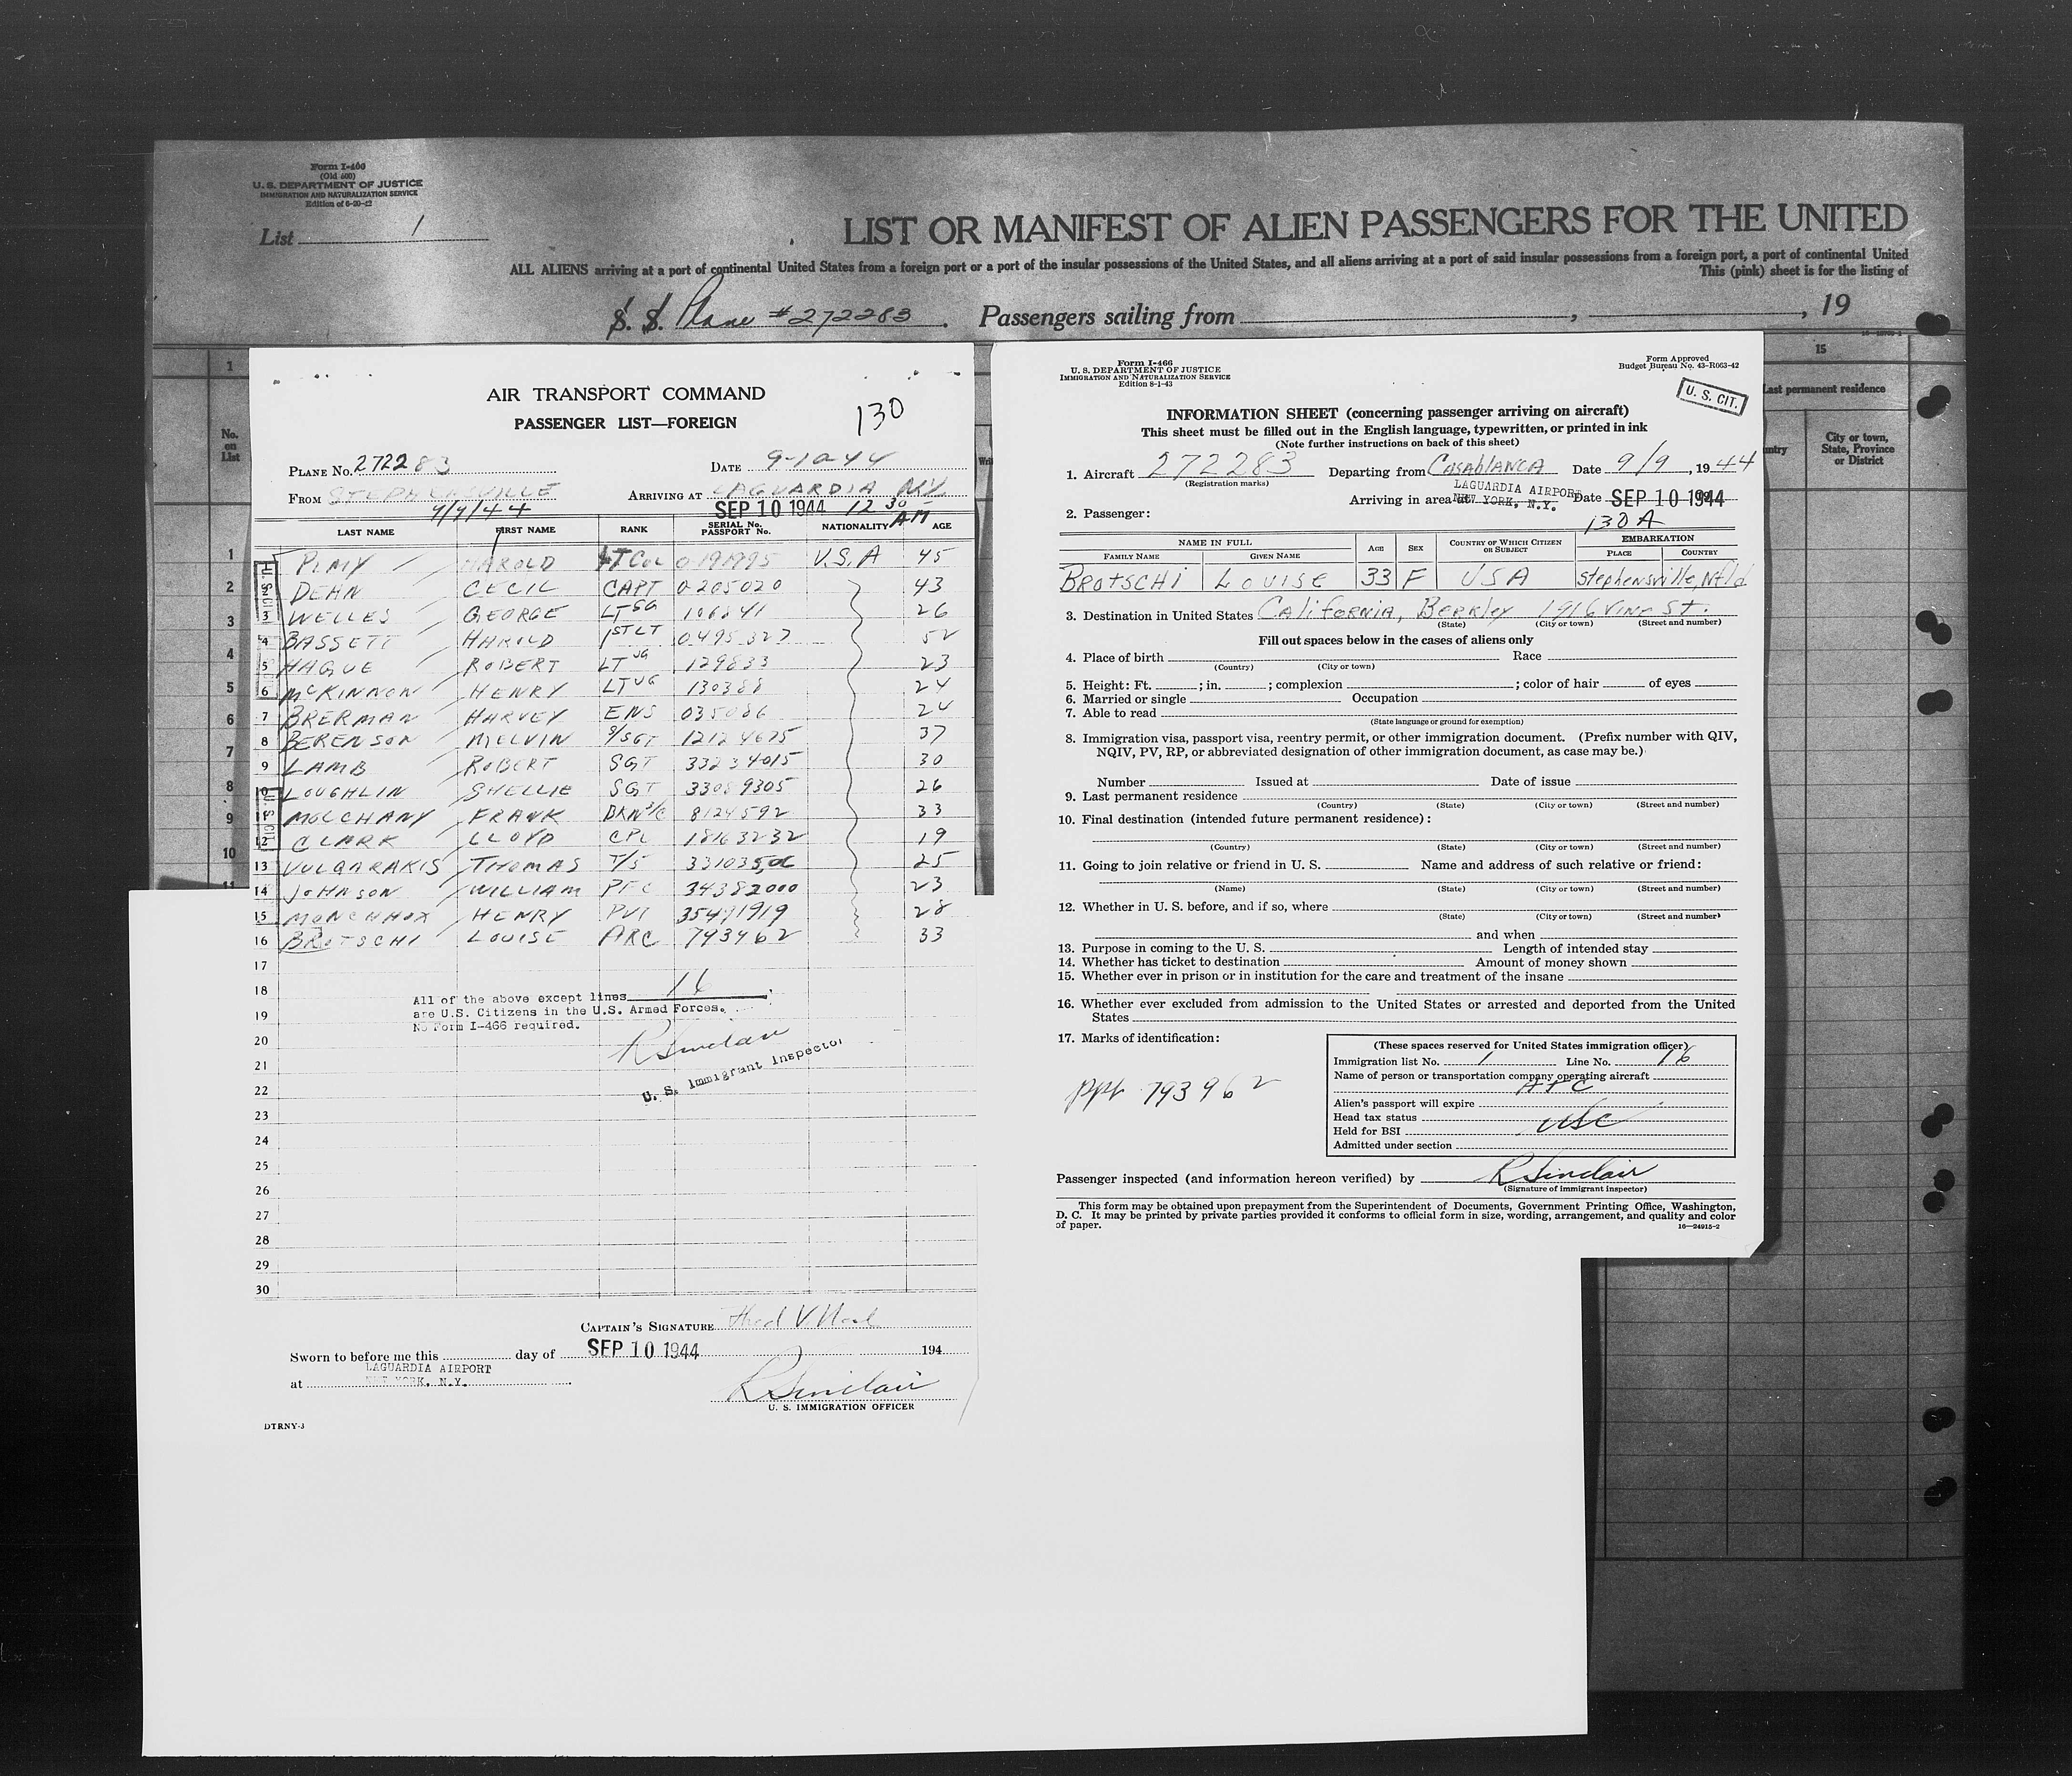 Form I-466
(Old 600)
U. S. DEPARTMENT OF JUSTICE
IMMIGRATION AND NATURALIZATION SERVICE
Edition of 6-20-42
List 1
LIST OR MANIFEST OF ALIEN PASSENGERS FOR THE UNITED
ALL ALIENS arriving at a port of continental United States from a foreign port or a port of the insular possessions of the United States, and all aliens arriving at a port of said insular possessions from a foreign port, a port of continental United
This (pink) sheet is for the listing of
S. S. Plane #272283. Passengers sailing from , , 19
1
No. on List
1
2
3
4
5
6
7
8
9
10
11
15
Last permanent residence
City or town, State, Province or District
AIR TRANSPORT COMMAND
PASSENGER LIST—FOREIGN
130
PLANE No. 272283 DATE 9-10-44
FROM STEPHENSVILLE ARRIVING AT LAGUARDIA N.Y.
9/9/44 SEP 10 1944 12 30 AM
LAST NAME FIRST NAME RANK SERIAL No. PASSPORT No. NATIONALITY AGE
1 HAROLD LT COL U.S.A 45
2 DEAN CECIL CAPT 0-205020 43
3 WELLES GEORGE LT SG 106841 26
4 BASSETT HAROLD 1ST LT 0495327 52
5 HAGUE ROBERT LT JG 129833 23
6 McKINNON HENRY LT JG 130388 24
7 BRERMAN HARVEY ENS 035086 24
8 BERENSON MELVIN S/SGT 12124675 37
9 LAMB ROBERT SGT 33234015 30
10 LOUGHLIN SHELLIE SGT 33089305 26
11 MOLCHANY FRANK BKN2/C 8124592 33
12 CLARK LLOYD CPL 18163232 19
13 VULGARAKIS THOMAS T/5 25
14 JOHNSON WILLIAM PFC 34382000 23
15 HENRY PVT 35491919 28
16 BROTSCHI LOUISE ARC 793962 33
17
18
19
20
21
22
23
24
25
26
27
28
29
30
All of the above except lines 16
are U.S. Citizens in the U.S. Armed Forces.
No Form I-466 required.
R Sinclair
U. S. Immigrant Inspector
CAPTAIN'S SIGNATURE
Sworn to before me this day of SEP 10 1944 194
at LAGUARDIA AIRPORT
NEW YORK, N.Y.
R Sinclair
U. S. IMMIGRATION OFFICER
DTRNY-3
Form I-466
U. S. DEPARTMENT OF JUSTICE
IMMIGRATION AND NATURALIZATION SERVICE
Edition 8-1-43
Form Approved
Budget Bureau No. 43-R063-42
U. S. CIT.
INFORMATION SHEET (concerning passenger arriving on aircraft)
This sheet must be filled out in the English language, typewritten, or printed in ink
(Note further instructions on back of this sheet)
1. Aircraft 272283 Departing from CASABLANCA Date 9/9, 1944
(Registration marks)
Arriving in area at LAGUARDIA AIRPORT NEW YORK, N.Y. Date SEP 10 1944
2. Passenger: 130 A
NAME IN FULL AGE SEX COUNTRY OF WHICH CITIZEN OR SUBJECT EMBARKATION
FAMILY NAME GIVEN NAME PLACE COUNTRY
BROTSCHI LOUISE 33 F USA Stephensville, Nfld
3. Destination in United States CALIFORNIA, BERKLEY 1916 VINE ST.
(State) (City or town) (Street and number)
Fill out spaces below in the cases of aliens only
4. Place of birth Race
(Country) (City or town)
5. Height: Ft. ; in. ; complexion ; color of hair of eyes
6. Married or single Occupation
7. Able to read
(State language or ground for exemption)
8. Immigration visa, passport visa, reentry permit, or other immigration document. (Prefix number with QIV,
NQIV, PV, RP, or abbreviated designation of other immigration document, as case may be.)
Number Issued at Date of issue
9. Last permanent residence
(Country) (State) (City or town) (Street and number)
10. Final destination (intended future permanent residence):
(Country) (State) (City or town) (Street and number)
11. Going to join relative or friend in U. S. Name and address of such relative or friend:
(Name) (State) (City or town) (Street and number)
12. Whether in U. S. before, and if so, where
(State) (City or town) (Street and number)
and when
13. Purpose in coming to the U. S. Length of intended stay
14. Whether has ticket to destination Amount of money shown
15. Whether ever in prison or in institution for the care and treatment of the insane
16. Whether ever excluded from admission to the United States or arrested and deported from the United
States
17. Marks of identification:
ppt 793962
(These spaces reserved for United States immigration officer)
Immigration list No. 1 Line No. 16
Name of person or transportation company operating aircraft
ATC
Alien's passport will expire
Head tax status USC
Held for BSI
Admitted under section
Passenger inspected (and information hereon verified) by R Sinclair
(Signature of immigrant inspector)
This form may be obtained upon prepayment from the Superintendent of Documents, Government Printing Office, Washington,
D. C. It may be printed by private parties provided it conforms to official form in size, wording, arrangement, and quality and color
of paper. 16—24915-2